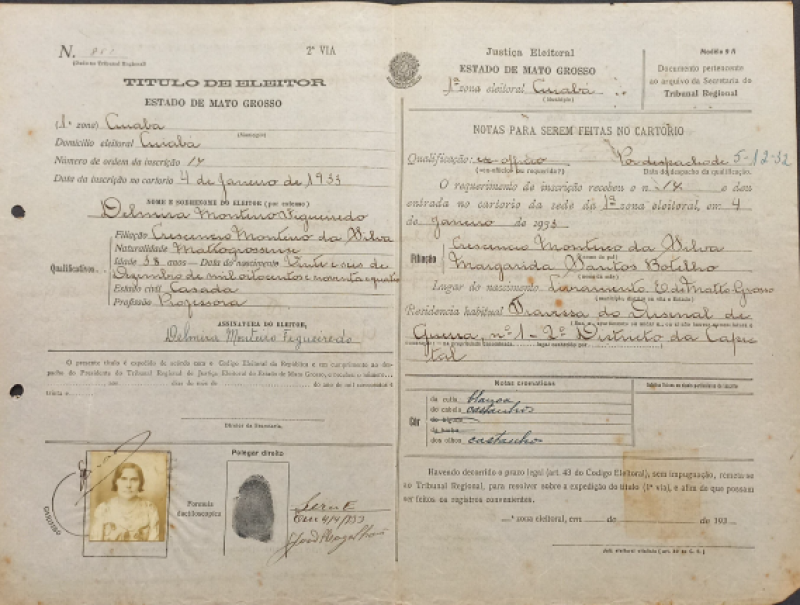 N.
2ª VIA
(Selo no Tribunal Regional)
TITULO DE ELEITOR
ESTADO DE MATO GROSSO
(1ª zona) Cuiabá
(Municipio)
Domicilio eleitoral Cuiabá
Número de ordem da inscrição 14
Data da inscrição no cartorio 4 de Janeiro de 1933
NOME E SOBRENOME DO ELEITOR (por extenso)
Delmira Monteiro Figueiredo
Qualificativos
Filiação Crescencio Monteiro da Silva
Naturalidade Mattogrossense
Idade 38 anos — Data do nascimento Vinte e seis de
Dezembro de mil oitocentos e noventa e quatro
Estado civil Casada
Profissão Professora
ASSINATURA DO ELEITOR,
Delmira Monteiro Figueiredo
O presente titulo é expedido de acôrdo com o Codigo Eleitoral da Republica e em cumprimento ao des-
pacho do Presidente do Tribunal Regional de Justiça Eleitoral do Estado de Mato Grosso, e recebeu o número
aos dias do mes de do ano de mil novecentos e
Diretor da Secretaria.
Polegar direito
Formula
dactiloscopica
Em 4/4/933
Justiça Eleitoral
ESTADO DE MATO GROSSO
1ª zona eleitoral Cuiabá
(Municipio)
Documento pertencente
ao arquivo da Secretaria do
Tribunal Regional
NOTAS PARA SEREM FEITAS NO CARTÓRIO
Qualificação: ex-officio Por despacho de 5-12-32
(ex-officio ou requerida?) Data do despacho da qualificação.
O requerimento de inscrição recebeu o n. 14 e deu
entrada no cartorio da sede da 1ª zona eleitoral, em 4
de Janeiro de 1933
Filiação
Crescencio Monteiro da Silva
(nome do pai)
Margarida Santos Botelho
Lugar do nascimento Livramento E. de Matto Grosso
Residencia habitual Travessa do Arsenal de
Guerra, nº 1 - 2º Districto da Capi-
tal
Notas cromaticas
Côr
da cutis branca
do cabelo castanhos
do bigode
da barba
dos olhos castanho
Havendo decorrido o prazo legal (art. 43 do Codigo Eleitoral), sem impugnação, remeta-se
ao Tribunal Regional, para resolver sobre a expedição do titulo (1ª via), e afim de que possam
ser feitos os registros convenientes.
ª zona eleitoral, em de de 193